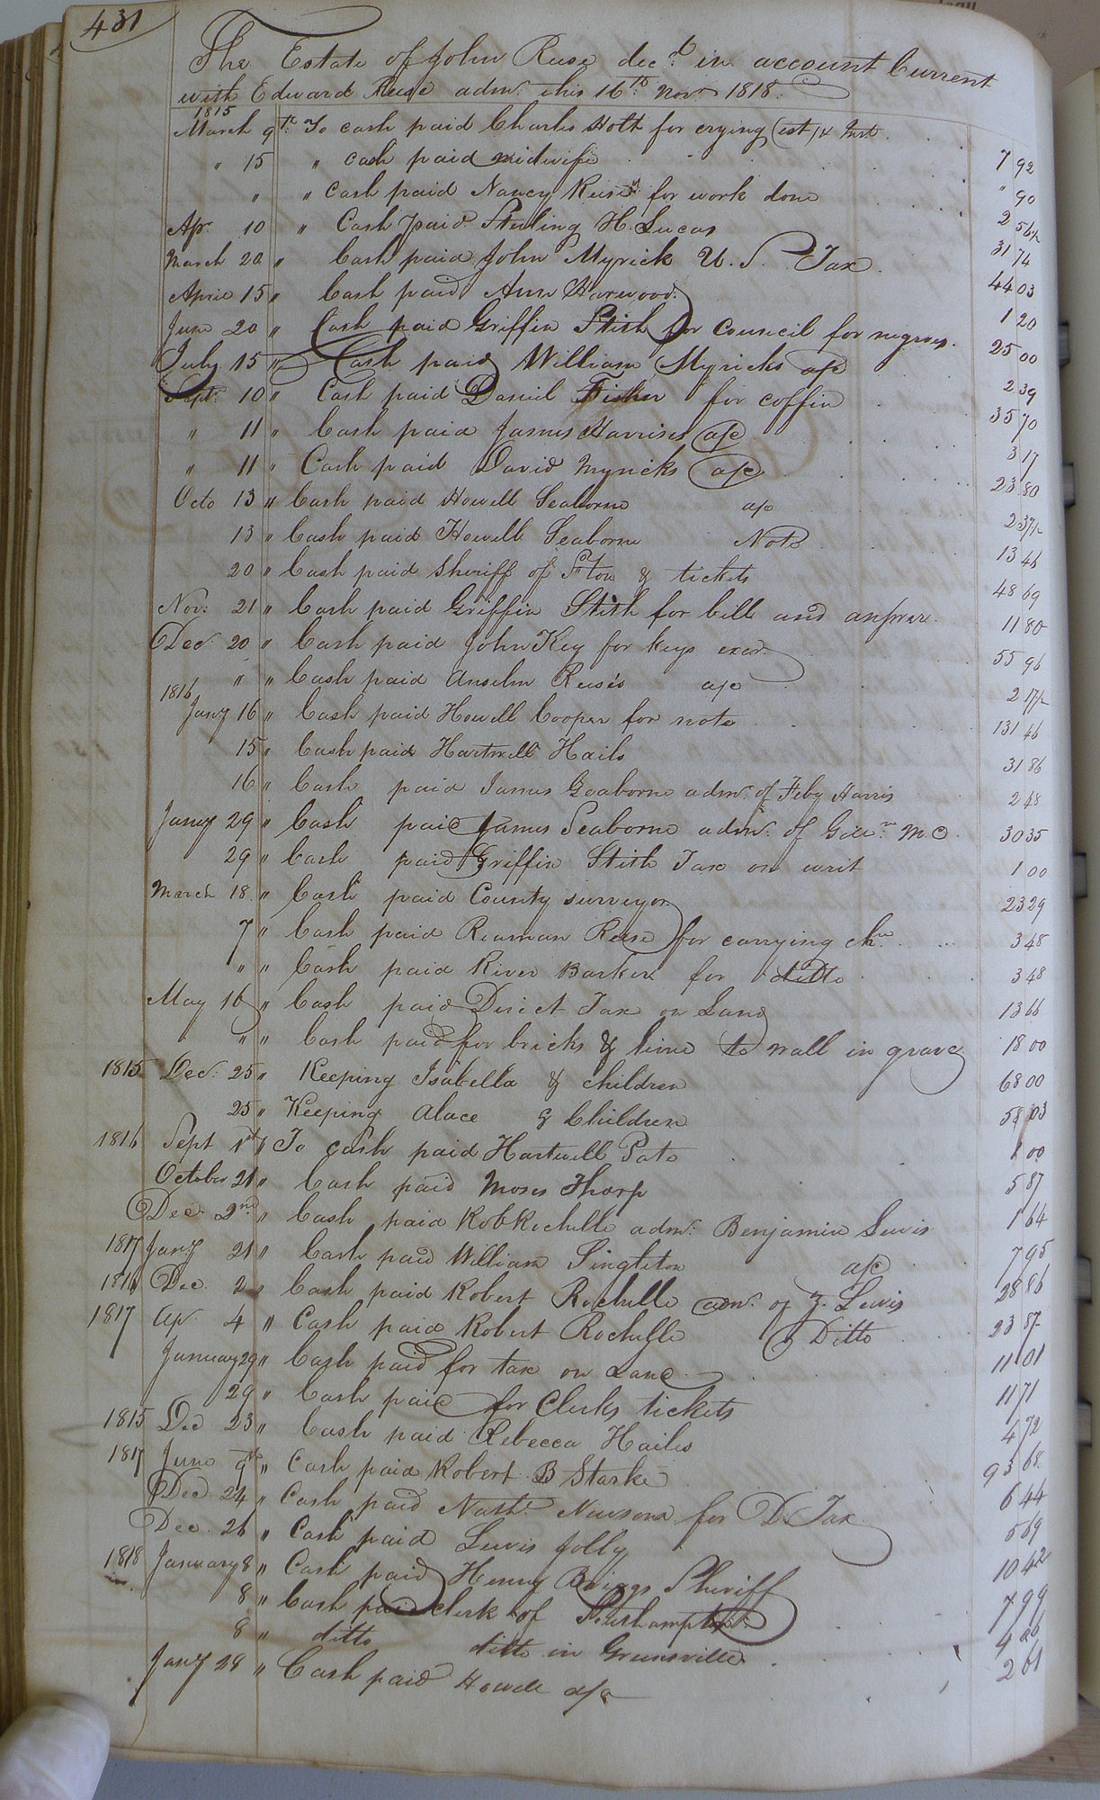 431
The Estate of John Reese decd. in account Current
with Edward Reese admr. this 16th Novr. 1818.
1815
March 9th To cash paid Charles Holt for crying (est) & Inst 7 92
" 15 " cash paid midwife " 90
" " cash paid Nancy Reese for work done 2 56½
Apr. 10 " Cash paid Sterling H. Lucas 31 74
March 20 " Cash paid John Myrick U. S. Tax 44 03
April 15 " Cash paid Ann Harwood 1 20
June 20 " Cash paid Griffin Stith for council for negroes. 25 00
July 15 " Cash paid William Myricks a/c 2 39
Sept. 10 " Cash paid Daniel Fisher for coffin 35 70
" 11 " Cash paid James Harrises a/c 3 17
" 11 " Cash paid David Myricks a/c 23 80
Octo 13 " Cash paid Howell Seaborne a/c 2 37½
13 " Cash paid Howell Seaborne Note 13 46
20 " Cash paid Sheriff of & tickets 48 69
Nov. 21 " Cash paid Griffin Stith for bill and answer. 11 80
Dec. 20 " Cash paid John Key for Keys exor. 55 96
" " Cash paid Anselm Reese's a/c 2 17½
1816
Jany 16 " Cash paid Howell Cooper for note 131 46
15 " Cash paid Hartwell Hails 31 86
16 " Cash paid James Seaborne admr. of Feby Harris 2 48
Jany 29 " Cash paid James Seaborne admr. of 30 35
29 " Cash paid Griffin Stith Tax on writ 1 00
March 18 " Cash paid County surveyor 23 29
7 " Cash paid Reaman Reese for carrying chn 3 48
" " Cash paid River Barker for ditto 3 48
May 16 " Cash paid Direct Tax on Land 13 66
" " Cash paid for bricks & lime to wall in grave 18 00
1815 Dec. 25 " Keeping Isabella & children 68 00
25 " Keeping Alace & Children 58 03
1816 Sept 1st " To cash paid Hartwell Pate 1 00
October 21 " Cash paid Moses Tharp 5 87
Dec. 2nd " Cash paid Rob Rochelle admr. Benjamin Lewis 1 64
1817 Jany 21 " Cash paid William Singleton a/c 7 95
1816 Dec. 2 " Cash paid Robert Rochelle admr. of Z. Lewis 28 86
1817 Ap. 4 " Cash paid Robert Rochelle Ditto 23 87
January 29 " Cash paid for tax on Land 11 01
29 " Cash paid for Clerks tickets 11 71
1815 Dec 23 " Cash paid Rebecca Hailes 4 72
1817 June 9th " Cash paid Robert B Starke 93 68
Dec 24 " Cash paid Nathl. Newsom for D. Tax 6 44
Dec. 26 " Cash paid Lewis Jolly 5 69
1818 January 8 " Cash paid Henry Briggs Sheriff 10 42
8 " Cash paid clerk of Southampton 7 99
8 " ditto ditto in Greensville 4 26
Jany 28 " Cash paid Howell a/c 2 61